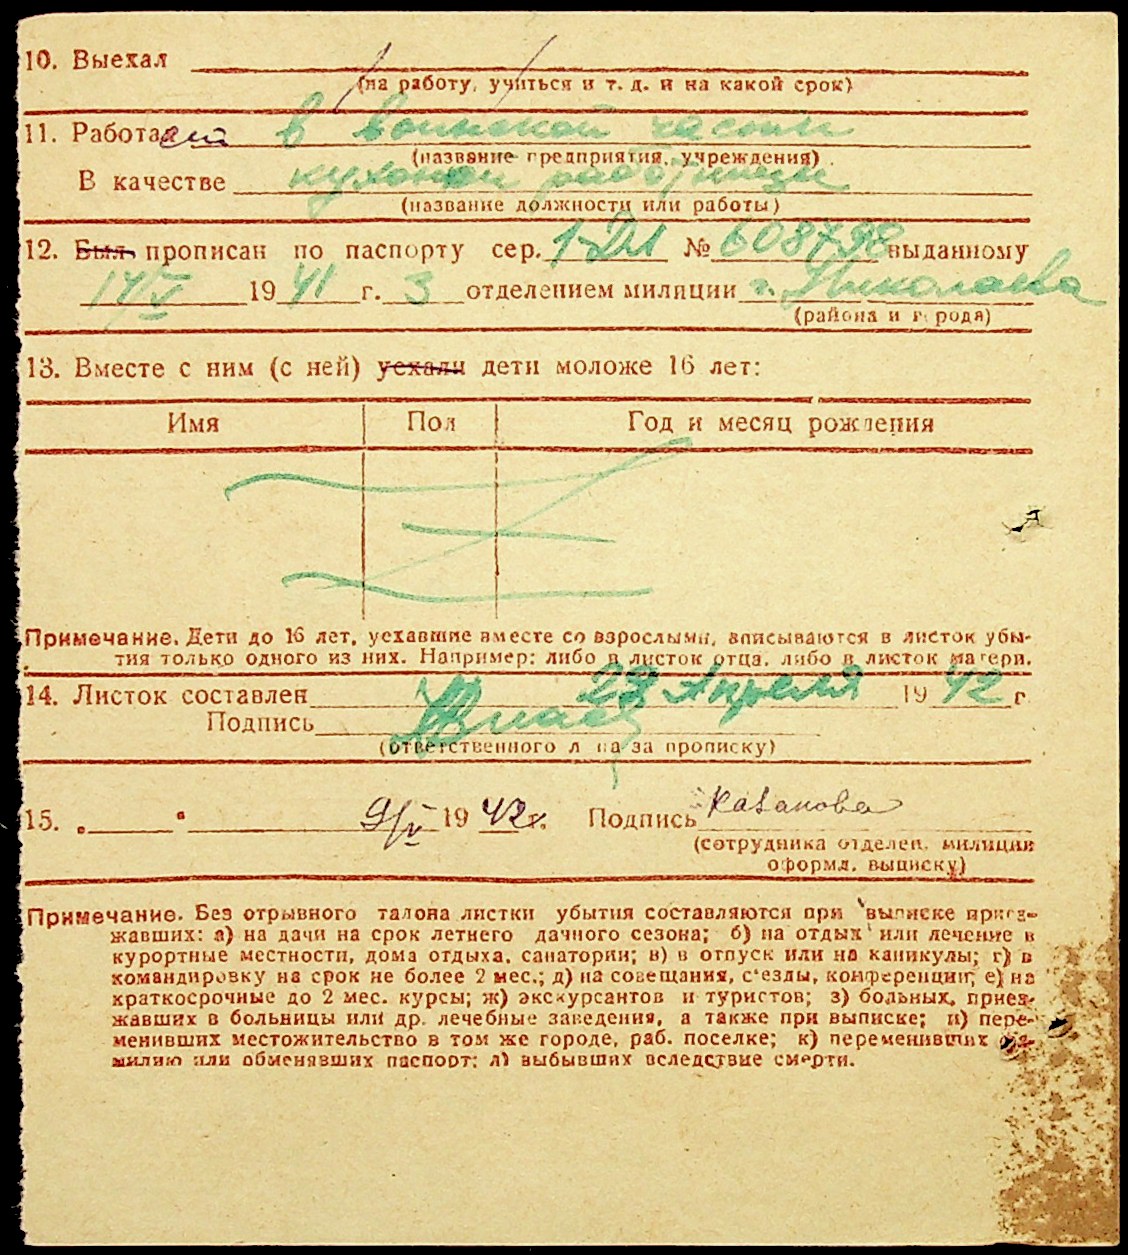 10. Выехал
(на работу, учиться и т. д. и на какой срок)
11. Работает в воинской части
(название предприятия, учреждения)
В качестве кухонной работницы
(название должности или работы)
12. Был прописан по паспорту сер. № 608798 выданному
14/V 1941 г. 3 отделением милиции г. Николаева
(района и города)
13. Вместе с ним (с ней) уехали дети моложе 16 лет:
Имя Пол Год и месяц рождения
Примечание. Дети до 16 лет, уехавшие вместе со взрослыми, вписываются в листок убы-
тия только одного из них. Например: либо в листок отца, либо в листок матери.
14. Листок составлен 23 Апреля 1942 г
Подпись
(ответственного лица за прописку)
15. „ " 9/V 1942 г. Подпись Казакова
(сотрудника отделен. милиции
оформл. выписку)
Примечание. Без отрывного талона листки убытия составляются при выписке приез-
жавших: а) на дачи на срок летнего дачного сезона; б) на отдых или лечение в
курортные местности, дома отдыха, санатории; в) в отпуск или на каникулы; г) в
командировку на срок не более 2 мес.; д) на совещания, с'езды, конференции; е) на
краткосрочные до 2 мес. курсы; ж) экскурсантов и туристов; з) больных, приез-
жавших в больницы или др. лечебные заведения, а также при выписке; и) пере-
менивших местожительство в том же городе, раб. поселке; к) переменивших фа-
милию или обменявших паспорт; л) выбывших вследствие смерти.